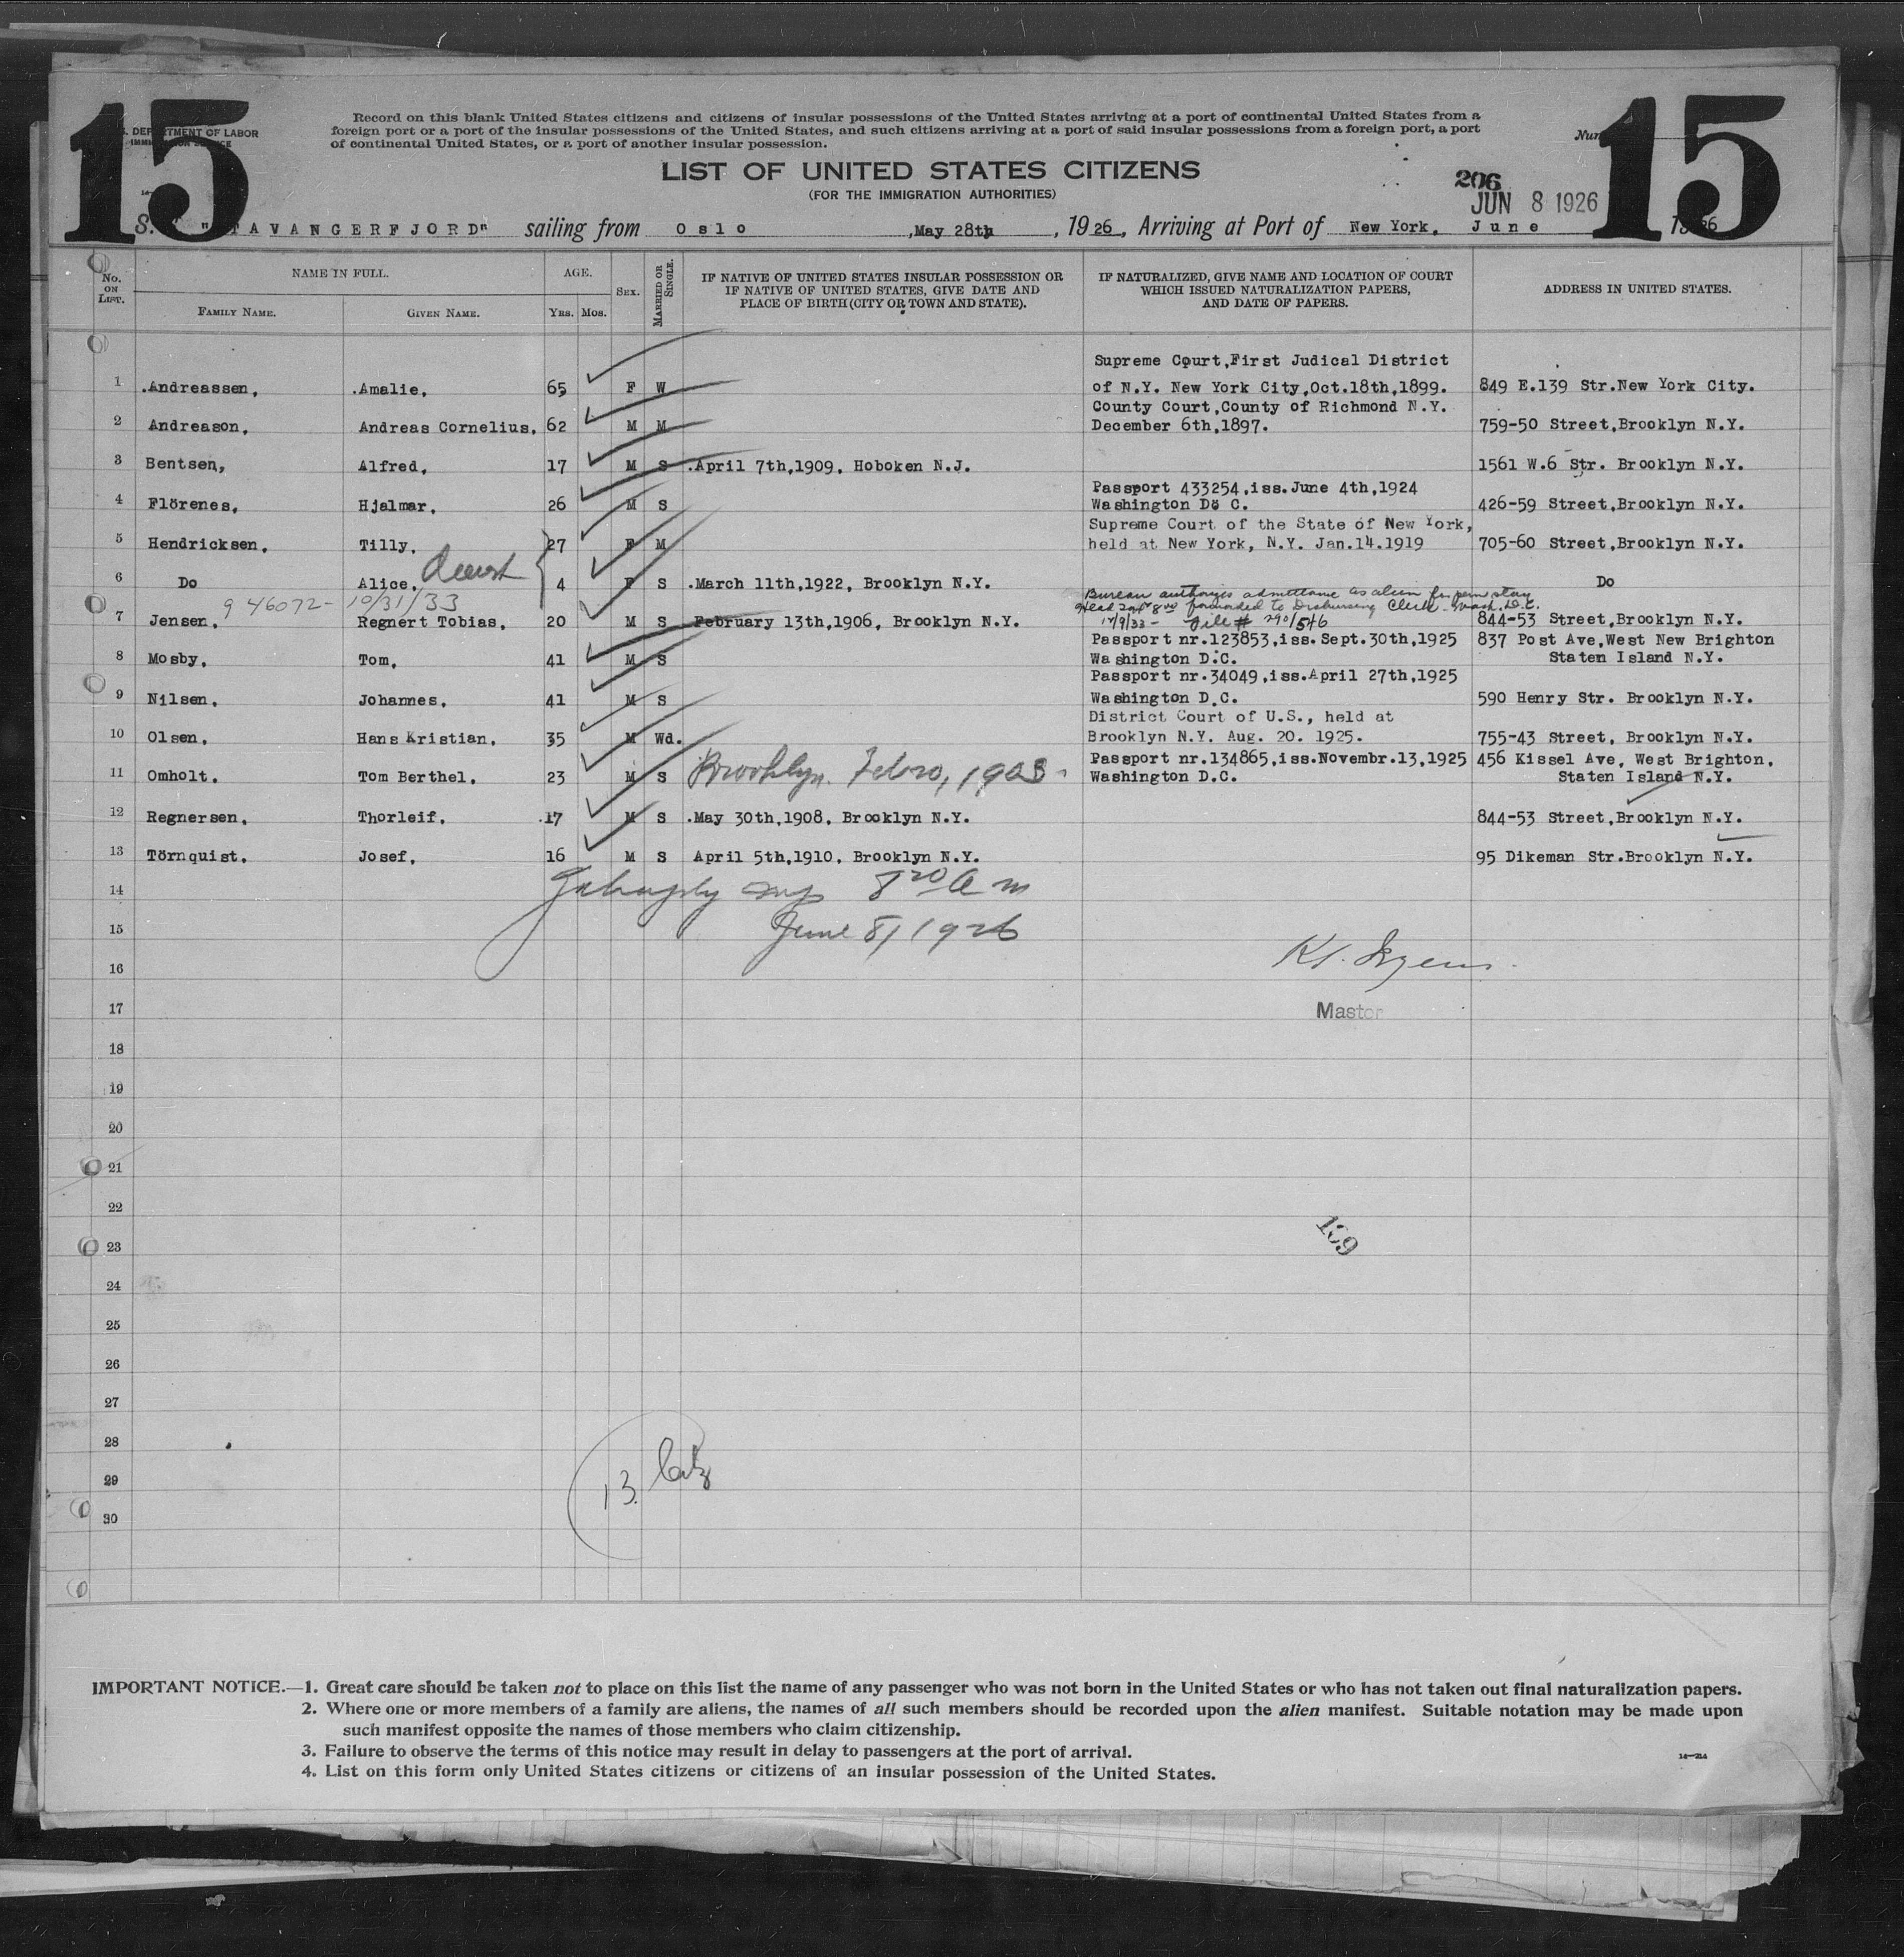 15
15
U.S. DEPARTMENT OF LABOR
IMMIGRATION SERVICE
Record on this blank United States citizens and citizens of insular possessions of the United States arriving at a port of continental United States from a
foreign port or a port of the insular possessions of the United States, and such citizens arriving at a port of said insular possessions from a foreign port, a port
of continental United States, or a port of another insular possession.
LIST OF UNITED STATES CITIZENS
(FOR THE IMMIGRATION AUTHORITIES)
206
JUN 8 1926
S. "STAVANGERFJORD" sailing from Oslo ,May 28th, 1926, Arriving at Port of New York. June 1926
No. ON LIST. NAME IN FULL. AGE. SEX. MARRIED OR SINGLE. IF NATIVE OF UNITED STATES INSULAR POSSESSION OR IF NATIVE OF UNITED STATES, GIVE DATE AND PLACE OF BIRTH (CITY OR TOWN AND STATE). IF NATURALIZED, GIVE NAME AND LOCATION OF COURT WHICH ISSUED NATURALIZATION PAPERS, AND DATE OF PAPERS. ADDRESS IN UNITED STATES.
FAMILY NAME. GIVEN NAME. YRS. MOS.
Supreme Court,First Judical District
1 .Andreassen, .Amalie. 65 F W of N.Y. New York City,Oct.18th,1899. 849 E.139 Str.New York City.
County Court,County of Richmond N.Y.
2 Andreason. Andreas Cornelius. 62 M M December 6th,1897. 759-50 Street,Brooklyn N.Y.
3 Bentsen, Alfred. 17 M S .April 7th,1909. Hoboken N.J. 1561 W.6 Str. Brooklyn N.Y.
Passport 433254,iss.June 4th,1924
4 Flörenes. Hjalmar. 26 M S Washington D. C. 426-59 Street,Brooklyn N.Y.
Supreme Court of the State of New York,
5 Hendricksen. Tilly. 27 F M held at New York, N.Y. Jan.14.1919 705-60 Street,Brooklyn N.Y.
6 Do Alice. 4 F S .March 11th,1922, Brooklyn N.Y. Do
Bureau authorizes admittance as alien for perm stay
9 46072- 10/31/33
Head tax 8.00 forwarded to Disbursing Clerk - Wash. D.C.
12/9/33 - File # 290/546
7 Jensen. Regnert Tobias. 20 M S February 13th,1906, Brooklyn N.Y. 844-53 Street,Brooklyn N.Y.
Passport nr.123853,iss.Sept.30th,1925 837 Post Ave,West New Brighton
8 Mosby. Tom. 41 M S Washington D.C. Staten Island N.Y.
Passport nr.34049,iss.April 27th,1925
9 Nilsen. Johannes. 41 M S Washington D.C. 590 Henry Str. Brooklyn N.Y.
District Court of U.S., held at
10 Olsen. Hans Kristian. 35 M Wd. Brooklyn N.Y. Aug. 20. 1925. 755-43 Street, Brooklyn N.Y.
Passport nr.134865,iss.Novembr.13,1925 456 Kissel Ave, West Brighton.
11 Omholt. Tom Berthel. 23 M S Brooklyn. Feb 20, 1903 - Washington D.C. Staten Island N.Y.
12 Regnersen. Thorleif. .17 M S .May 30th,1908, Brooklyn N.Y. 844-53 Street,Brooklyn N.Y.
13 Törnquist. Josef. 16 M S April 5th,1910. Brooklyn N.Y. 95 Dikeman Str.Brooklyn N.Y.
14 8 20 A m
15 June 8/1926
16
17 Master
18
19
20
21
22
139
23
24
25
26
27
28
29 13.
30
IMPORTANT NOTICE.—1. Great care should be taken not to place on this list the name of any passenger who was not born in the United States or who has not taken out final naturalization papers.
2. Where one or more members of a family are aliens, the names of all such members should be recorded upon the alien manifest. Suitable notation may be made upon
such manifest opposite the names of those members who claim citizenship.
3. Failure to observe the terms of this notice may result in delay to passengers at the port of arrival.
14—214
4. List on this form only United States citizens or citizens of an insular possession of the United States.